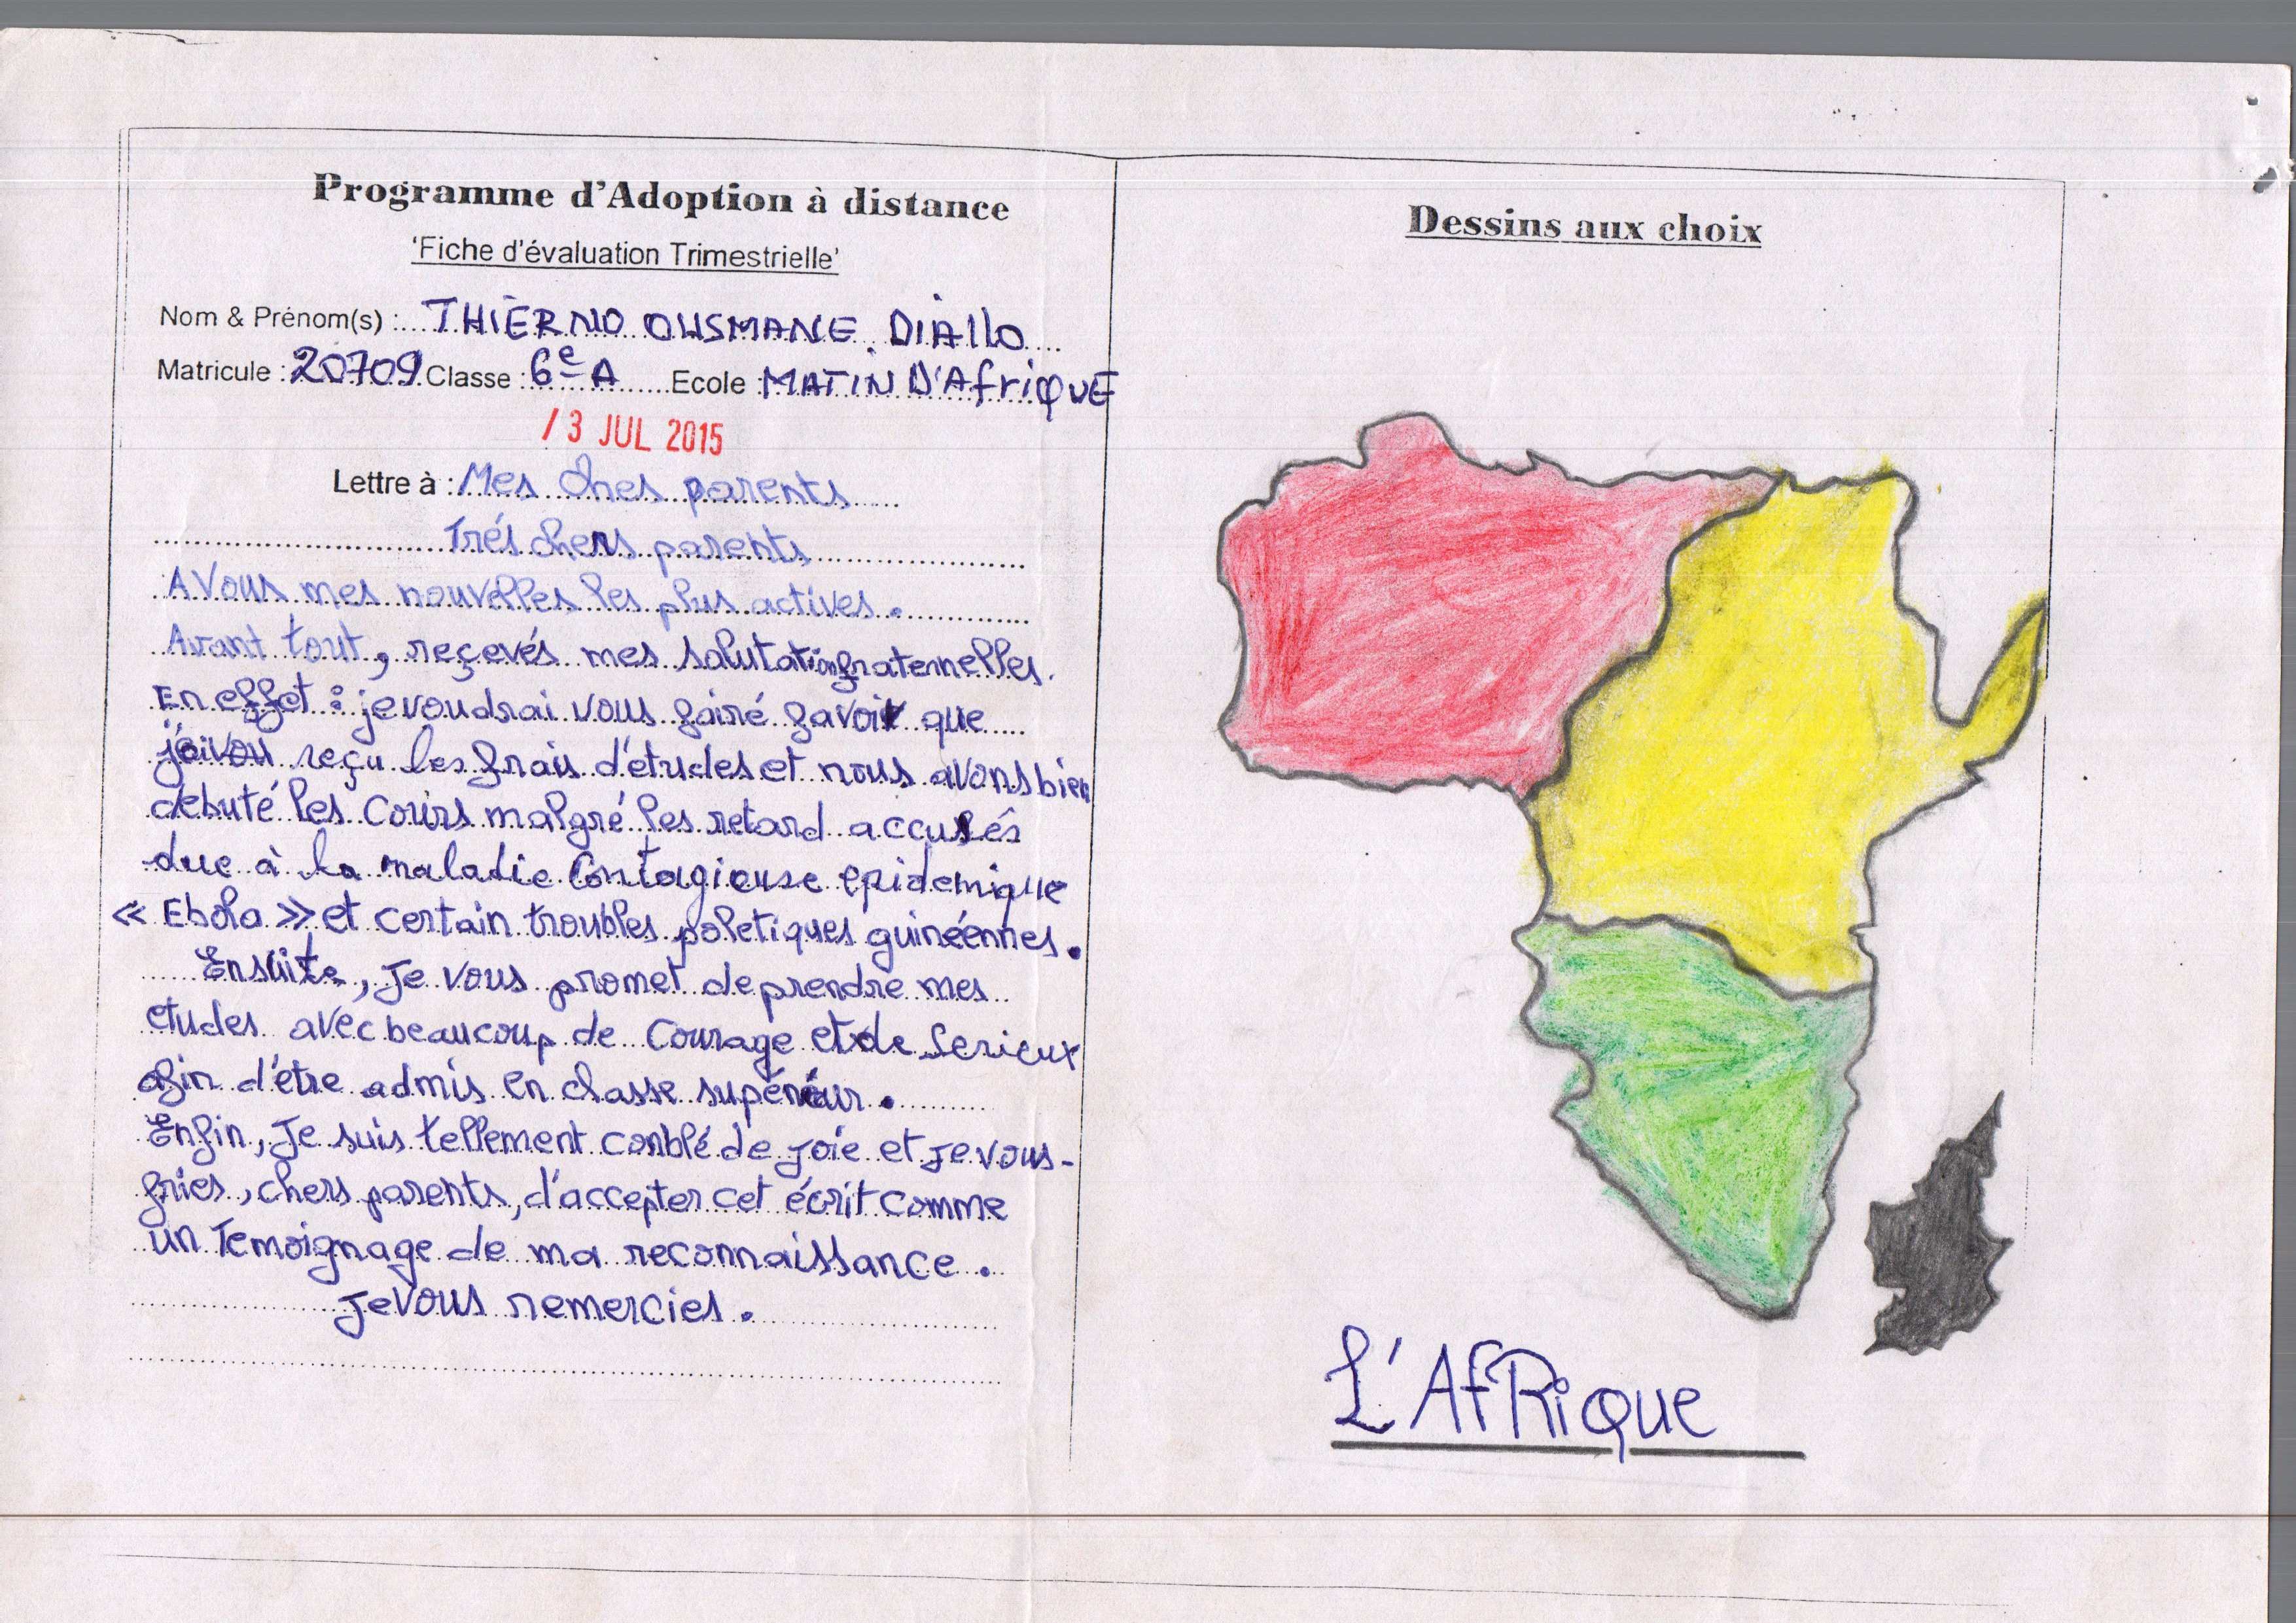 Programme d'Adoption à distance
'Fiche d'évaluation Trimestrielle'
Nom & Prénom(s) : THIERNO OUSMANE DiAllo
Matricule : 20709 Classe : 6e A Ecole : MATIN D'AfriQUE
/ 3 JUL 2015
Lettre à : Mes chers parents
Trés chers parents
A Vous mes nouvelles les plus actives.
Avant tout, reçevés mes salutation fraternelles.
En effet : je voudrai vous fairé savoir que
reçu les frais d'étudeset nous avons bien
debuté les cours malgré les retard accusés
due à la maladie Contagieuse epidemique
« Ebola » et certain troubles poletiques guinéennes.
Ensuite, Je vous promet de prendre mes
etudes avec beaucoup de Courage et de Serieux
afin d'être admis en classe supérieur.
Enfin, Je suis tellement conblé de joie et je vous-
pries, chers parents, d'accepter cet écrit comme
un Temoignage de ma reconnaissance.
Je Vous remercies.
Dessins aux choix
L'AfRique